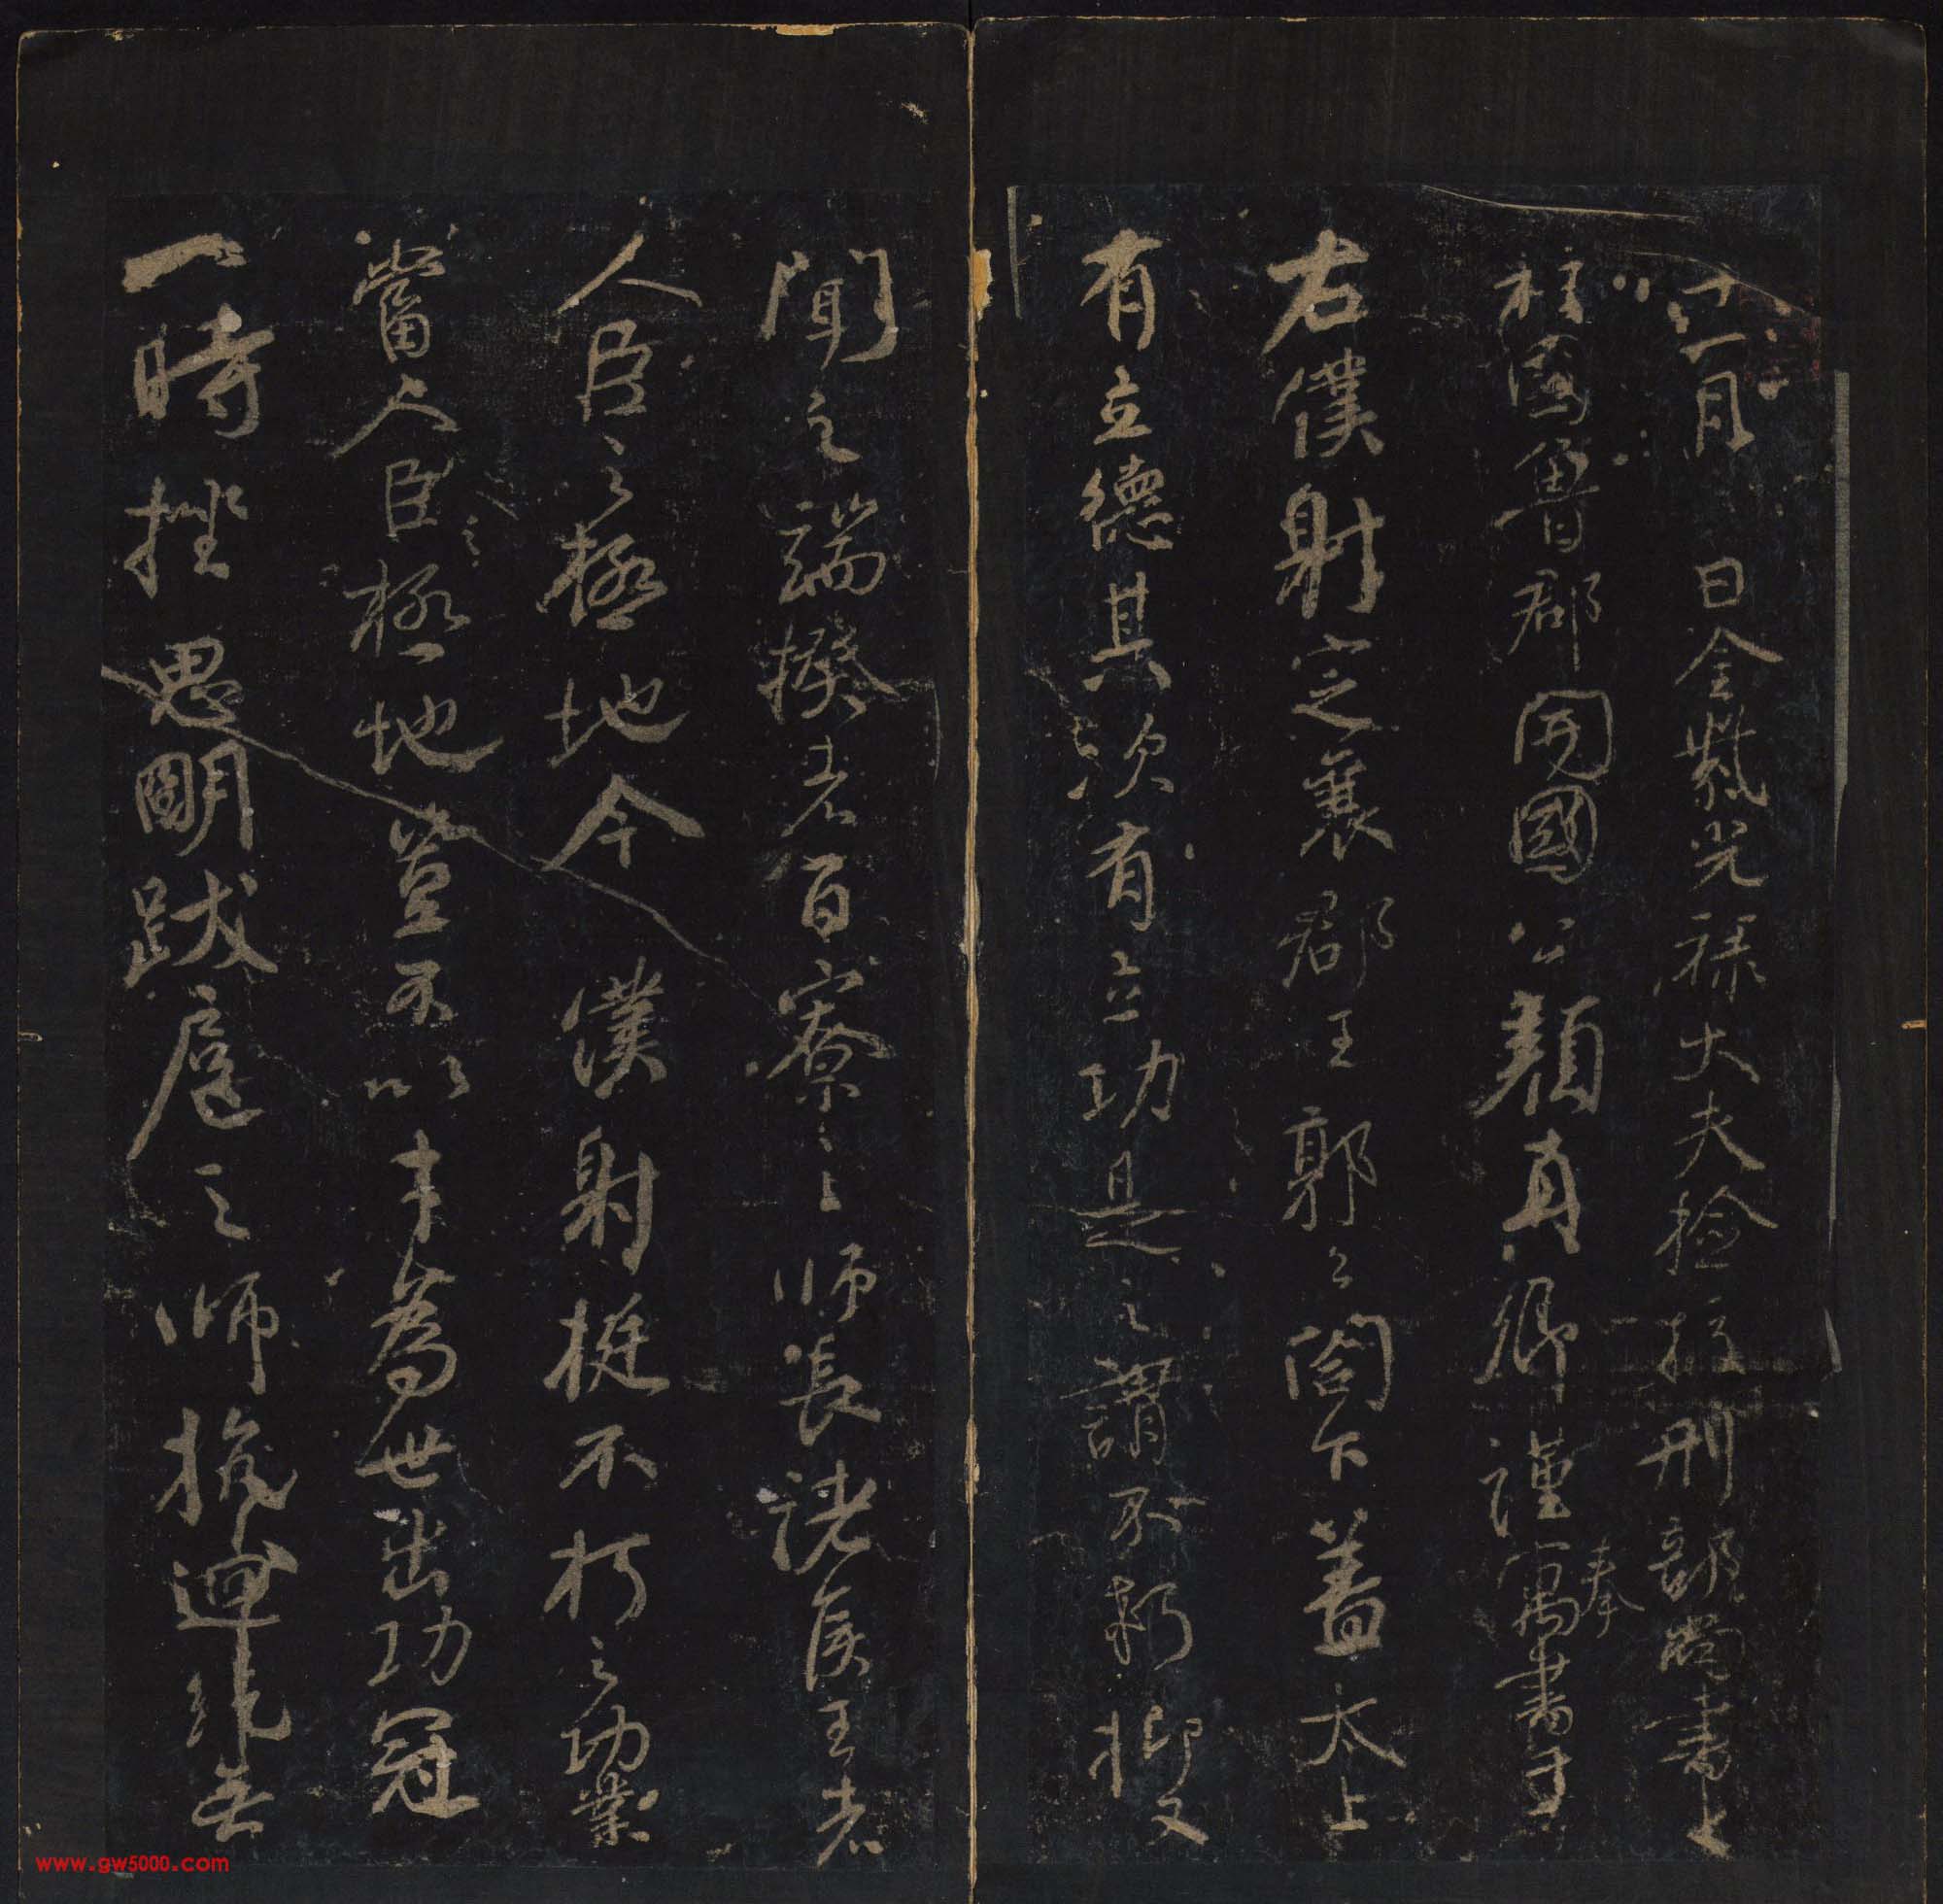 十一月 日金紫光祿大夫檢校刑部尚書上
柱國魯郡開國公顏真卿謹奉寓書于
右僕射定襄郡王郭公閤下蓋太上
有立德其次有立功是之謂不朽抑又
聞之端揆者百寮之師長諸侯王者
人臣之極地今僕射挺不朽之功業
當人臣之極地豈不以才為世出功冠
一時挫思明跋扈之師抗迴紇無
www.gw5000.com